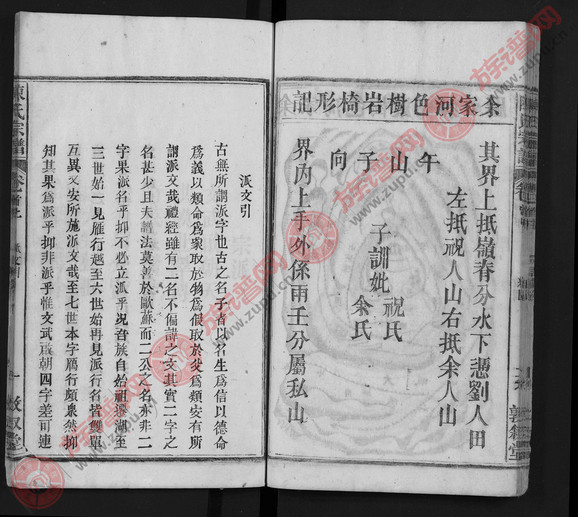 余家河色樹岩椅形記
其界上抵嶺脊分水下憑劉人田
左抵祝人山右抵余人山
午山子向
子訓妣祝氏
余氏
界內上手外係兩壬分屬私山
派文引
古無所謂派字也古之名子者以名生為信以德命
為義以類命為象取於物為假取於父為類安有所
謂派文哉禮經雖有二名不偏諱之文其實二字之
名甚少且夫譜法莫善於歐蘇而二公之名亦非二
字果派名乎抑不必立派乎況吾族自始祖遷湖至
三世始一見雁行越至六世始再見派行名皆雙單
互異又安所施派文哉至七世本字雁行頗衆然抑
知其果為派乎抑非派乎惟文武成朝四字差可連
陳氏宗譜
卷首
派文引
一
敦敘堂
族谱网
www.zupu.cn